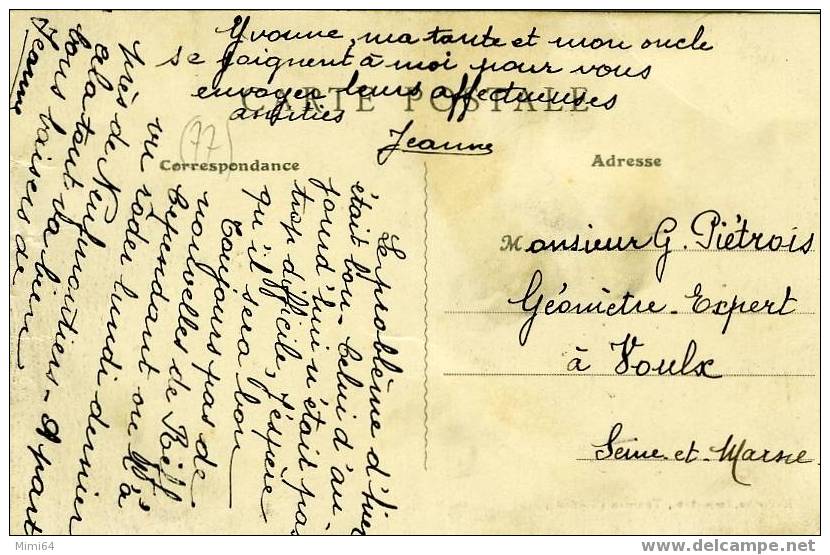 Yvonne, ma tante et mon oncle
se joignent à moi pour vous
envoyer leurs affectueuses
amitiés
Jeanne
CARTE POSTALE
(77)
Correspondance
Adresse
Le problème d'hier
était bon. Celui d'au-
jourd'hui n'était pas
trop difficile, j'espère
qu'il sera bon
Toujours pas de
nouvelles de Riff
Cependant on l'a
vu rôder lundi dernier
près de Neufmoutiers. A part
cela tout va bien
Bons baisers de
Jeanne
Monsieur G. Piétrois
Géomètre-Expert
à Voulx
Seine-et-Marne
Mimi64
www.delcampe.net